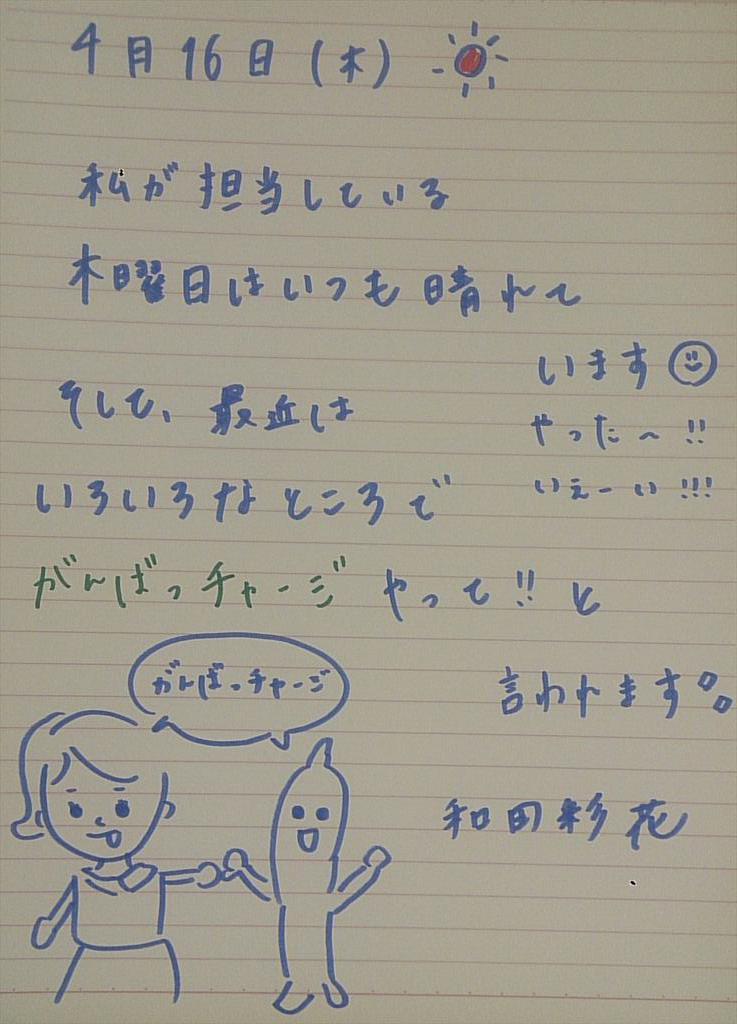 4月16日(木)
私が担当している
木曜日はいつも晴れて
います
やった〜!!
いえーい!!!
そして、最近は
いろいろなところで
がんばっチャージやって!!と
言われます。。
がんばっチャージ
和田彩花